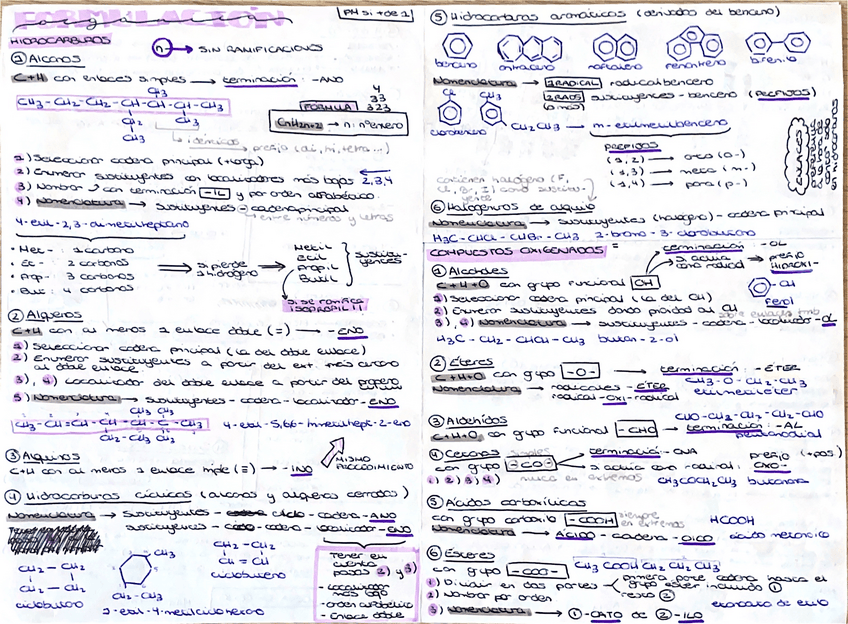 FORMULACIÓN
orgánica
PH si + de 1
HIDROCARBUROS
n → SIN RAMIFICACIONES
① Alcanos
C+H con enlaces simples → terminación: -ANO
CH₃
CH₃-CH₂-CH₂-CH-CH-CH-CH₃
CH₂ CH₃
CH₃
4
33
323
FORMULA
CnH2n+2 → n: nº enero
idénticos
prefijo (di, tri, tetra...)
1) Seleccionar cadena principal (+larga)
2) Enumerar sustituyentes con localizadores más bajos 2,3,4
3) Nombrar con terminación -IL y por orden alfabético
4) Nomenclatura → sustituyentes - cadena principal
entre números y letras
4-etil-2,3-dimetilheptano
• Met- : 1 carbono
• Et- : 2 carbonos
• Prop- : 3 carbonos
• But- : 4 carbonos
si pierde 1 hidrógeno
Metil
Etil
Propil
Butil
sustituyentes
si se ramifica
ISOPROPIL
② Alquenos
C+H con al menos 1 enlace doble (=) → -ENO
1) Seleccionar cadena principal (la del doble enlace)
2) Enumerar sustituyentes a partir del ext. más cercano
al doble enlace.
3), 4) Localizador del doble enlace a partir del
5) Nomenclatura → sustituyentes - cadena - localizador - ENO
CH₃ CH₃
CH₃-CH=CH-CH-CH-C-CH₃
CH₂-CH₃ CH₃
4-etil-5,6,6-trimetilhept-2-eno
③ Alquinos
C+H con al menos 1 enlace triple (≡) → -INO
MISMO
PROCEDIMIENTO
④ Hidrocarburos cíclicos (alcanos y alquenos cerrados)
Nomenclatura → sustituyentes - ciclo - cadena - ANO
sustituyentes - ciclo - cadena - localizador - ENO
CH₂-CH₂
CH₂-CH₂
ciclobutano
CH₃
CH₂-CH₃
2-etil-4-metilciclohexano
CH₂-CH₂
CH=CH
ciclobuteno
Tener en
cuenta
pasos 2) y 3)
- localizador
más bajo
- orden alfabético
- enlace doble
⑤ Hidrocarburos aromáticos (derivados del benceno)
benceno antraceno naftaleno fenantreno bifenilo
Nomenclatura → 1 RADICAL radical benceno
2 RADS sustituyentes - benceno (PREFIJOS)
(o más)
Cl CH₃
clorobenceno
CH₂CH₃ → m-etilmetilbenceno
PREFIJOS
(1,2) → orto (o-)
(1,3) → meta (m-)
(1,4) → para (p-)
contienen halógeno (F,
Cl, Br, I) como sustituyente
⑥ Halogenuros de alquilo
Nomenclatura → sustituyentes (halógeno) - cadena principal
H₃C-CHCl-CHBr-CH₃ 2-bromo-3-clorobutano
COMPUESTOS OXIGENADOS
① Alcoholes
terminación: -OL
si actúa como radical → prefijo HIDROXI-
C+H+O con grupo funcional OH
1) Seleccionar cadena principal (la del OH)
2) Enumerar sustituyentes dando prioridad al OH
3), 4) Nomenclatura → sustituyentes - cadena - localizador - OL
OH
Fenol
H₃C-CH₂-CHCH-CH₃ butan-2-ol
② Éteres
C+H+O con grupo -O- → terminación: -ÉTER
Nomenclatura → radicales - ÉTER
radical-OXI-radical
CH₃-O-CH₂-CH₃
etilmetiléter
③ Aldehídos
C+H+O con grupo funcional -CHO → terminación: -AL
CHO-CH₂-CH₂-CH₂-CHO
pentanodial
④ Cetonas simples
con grupo -CO-
terminación: -ONA
si actúa como radical: prefijo (+pos.)
OXO-
1) 2) 3) 4) nunca en extremos
CH₃COCH₂CH₃ butanona
⑤ Ácidos carboxílicos
con grupo carboxilo -COOH siempre
en extremos
HCOOH
Nomenclatura → ÁCIDO - cadena - OICO ácido metanoico
⑥ Ésteres
con grupo -COO- CH₃COOCH₂CH₂CH₃
1) Dividir en dos partes
primera parte cadena hasta el
grupo éster incluido ①
resto ②
2) Nombrar por orden
3) Nomenclatura → ①-OATO de ②-ILO